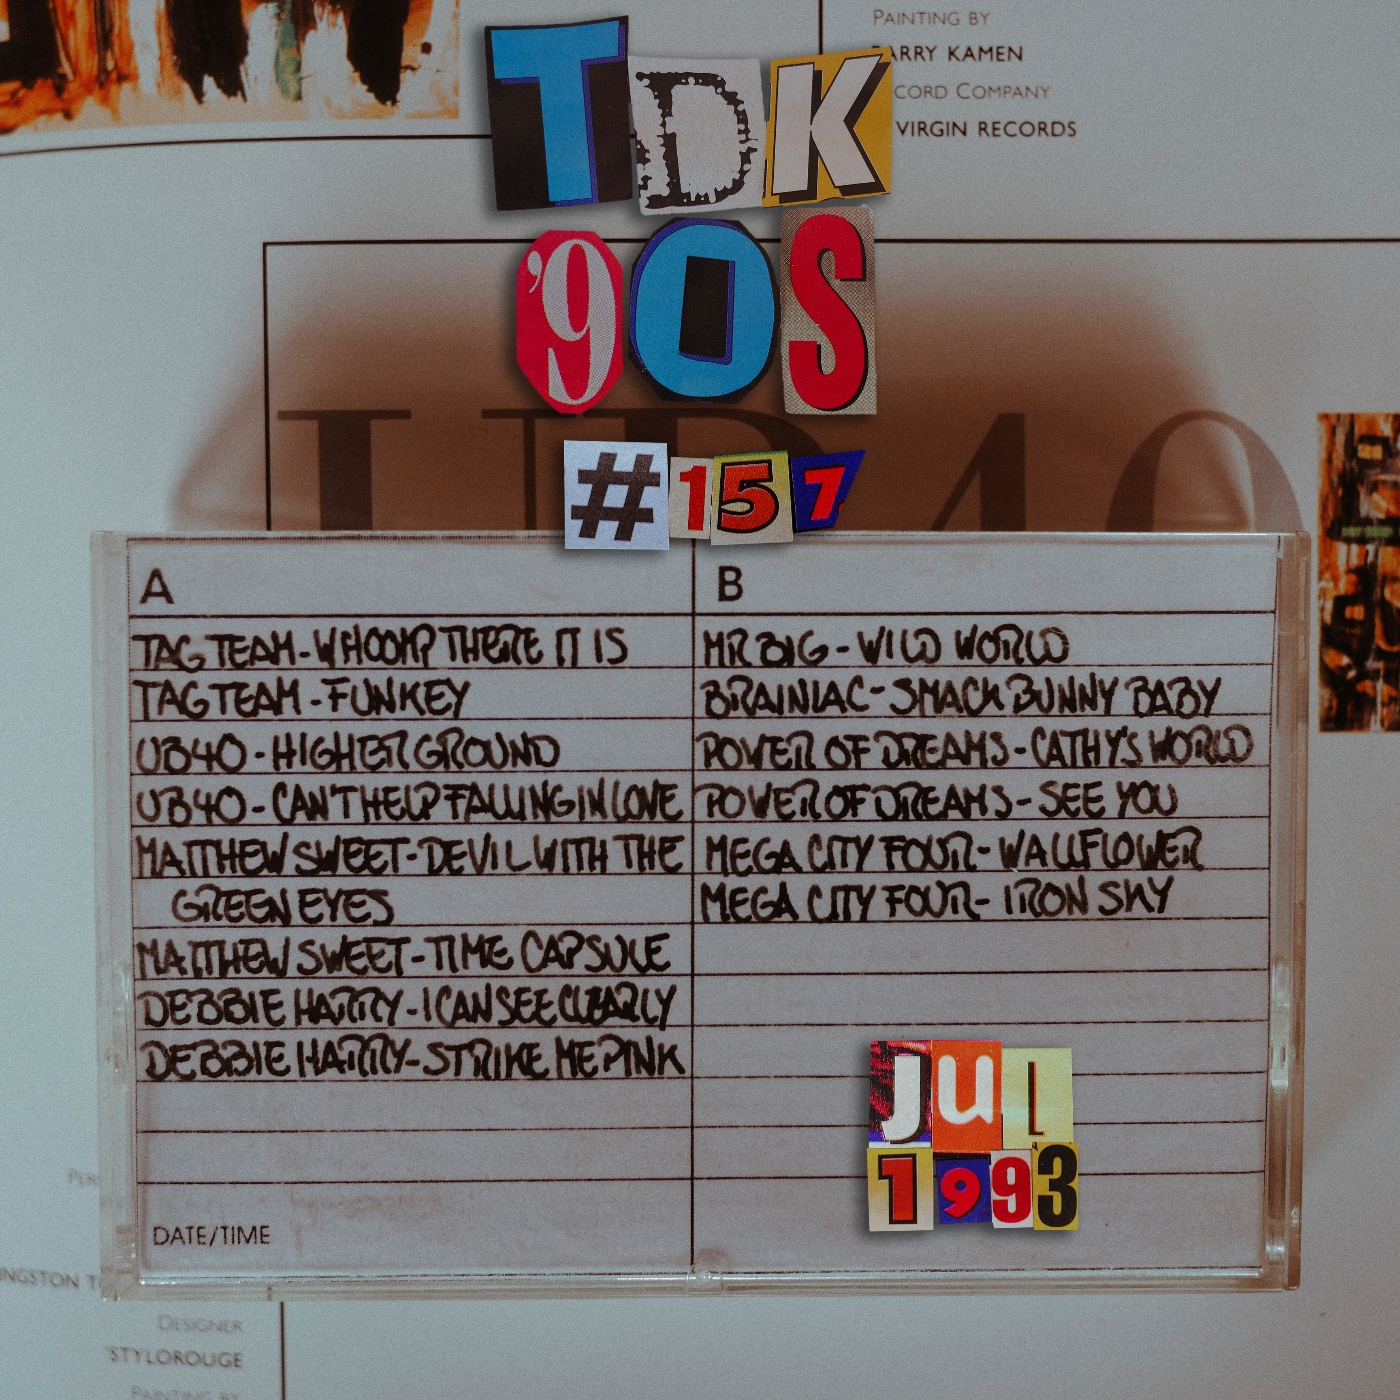 PAINTING BY
BARRY KAMEN
CORD COMPANY
VIRGIN RECORDS
TDK
'90S
UB40
#157
A
TAG TEAM - WHOOMP THERE IT IS
TAG TEAM - FUNKEY
UB40 - HIGHER GROUND
UB40 - CAN'T HELP FALLING IN LOVE
MATTHEW SWEET - DEVIL WITH THE
GREEN EYES
MATTHEW SWEET - TIME CAPSULE
DEBBIE HARRY - I CAN SEE CLEARLY
DEBBIE HARRY - STRIKE ME PINK
DATE/TIME
B
MR BIG - WILD WORLD
BRAINIAC - SMACK BUNNY BABY
POWER OF DREAMS - CATHY'S WORLD
POWER OF DREAMS - SEE YOU
MEGA CITY FOUR - WALLFLOWER
MEGA CITY FOUR - IRON SKY
JUL
1993
NGSTON
DESIGNER
STYLOROUGE
PAINTING BY